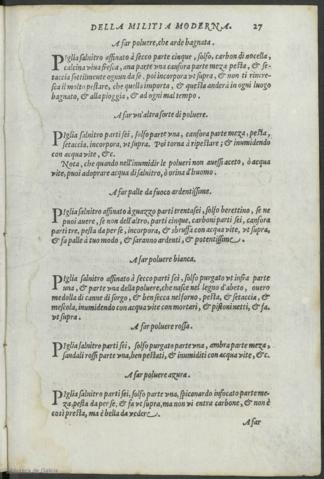 DELLA MILITIA MODERNA. 27
A far poluere, che arde bagnata.
Piglia salnitro affinato à secco parte cinque, solfo, carbon di nocella,
calcina viua fresca, ana parte vna canfora parte meza pesta, & se-
taccia sottilmente ognun da se. poi incorpora vt supra, & non ti incre-
sca il molto pestare, che quello importa, & questa anderà in ogni luogo
bagnato, & alla pioggia, & ad ogni mal tempo.
A far vn'altra sorte di poluere.
Piglia salnitro parti sei, solfo parte vna, canfora parte meza, pesta,
setaccia, incorpora, vt supra. Poi torna à ripestare; & inumidendo
con acqua vite, &c.
Nota, che quando nell'inumidir le polueri non auessi aceto, ò acqua
vite, puoi adoprare acqua di salnitro, ò orina d'huomo.
A far palle da fuoco ardentissime.
Piglia salnitro affinato à guazzo parti trentasei, solfo berettino, se ne
puoi auere, se non dell'altro, parti cinque, carboni parti sei, canfora
parti tre, pesta da per se, incorpora, & sbruffa con acqua vite, vt supra,
& fa palle à tuo modo, & saranno ardenti, & potentissime.
A far poluere bianca.
Piglia salnitro affinato à secco parti sei, solfo purgato vt infra parte
una, & parte vna della poluere, che nasce nel legno d'abeto, ouero
medolla di canne di sorgo, & ben secca nel forno, pesta, & setaccia, &
mescola, inumidendo con acqua vite con mortari, & pistoni netti, & fa.
vt supra.
A far poluere rossa.
Piglia salnitro parti sei, solfo purgato parte vna, ambra parte meza,
sandali rossi parte vna, ben pestati, & inumiditi con acqua vite, &c.
A far poluere azura.
Piglia salnitro parti sei, solfo parte vna, spiconardo infocato parte me-
za, pesta da per se, & fa vt supra, ma non vi entra carbone, & non è
così presta, ma è bella da vedere.
A far
de Galicia